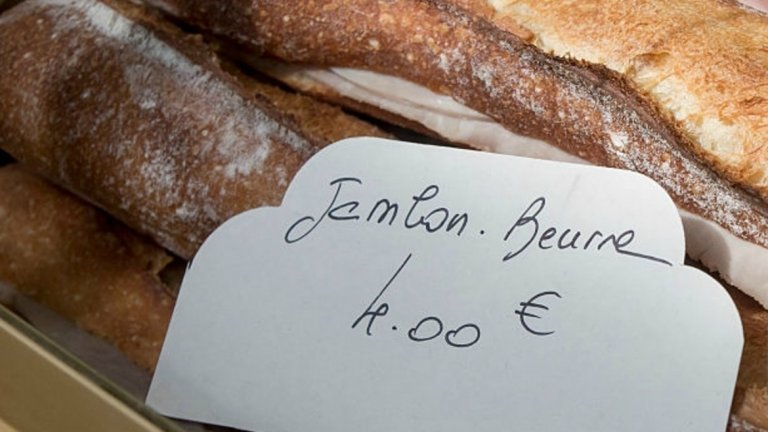 Jambon. Beurre
4.00 €